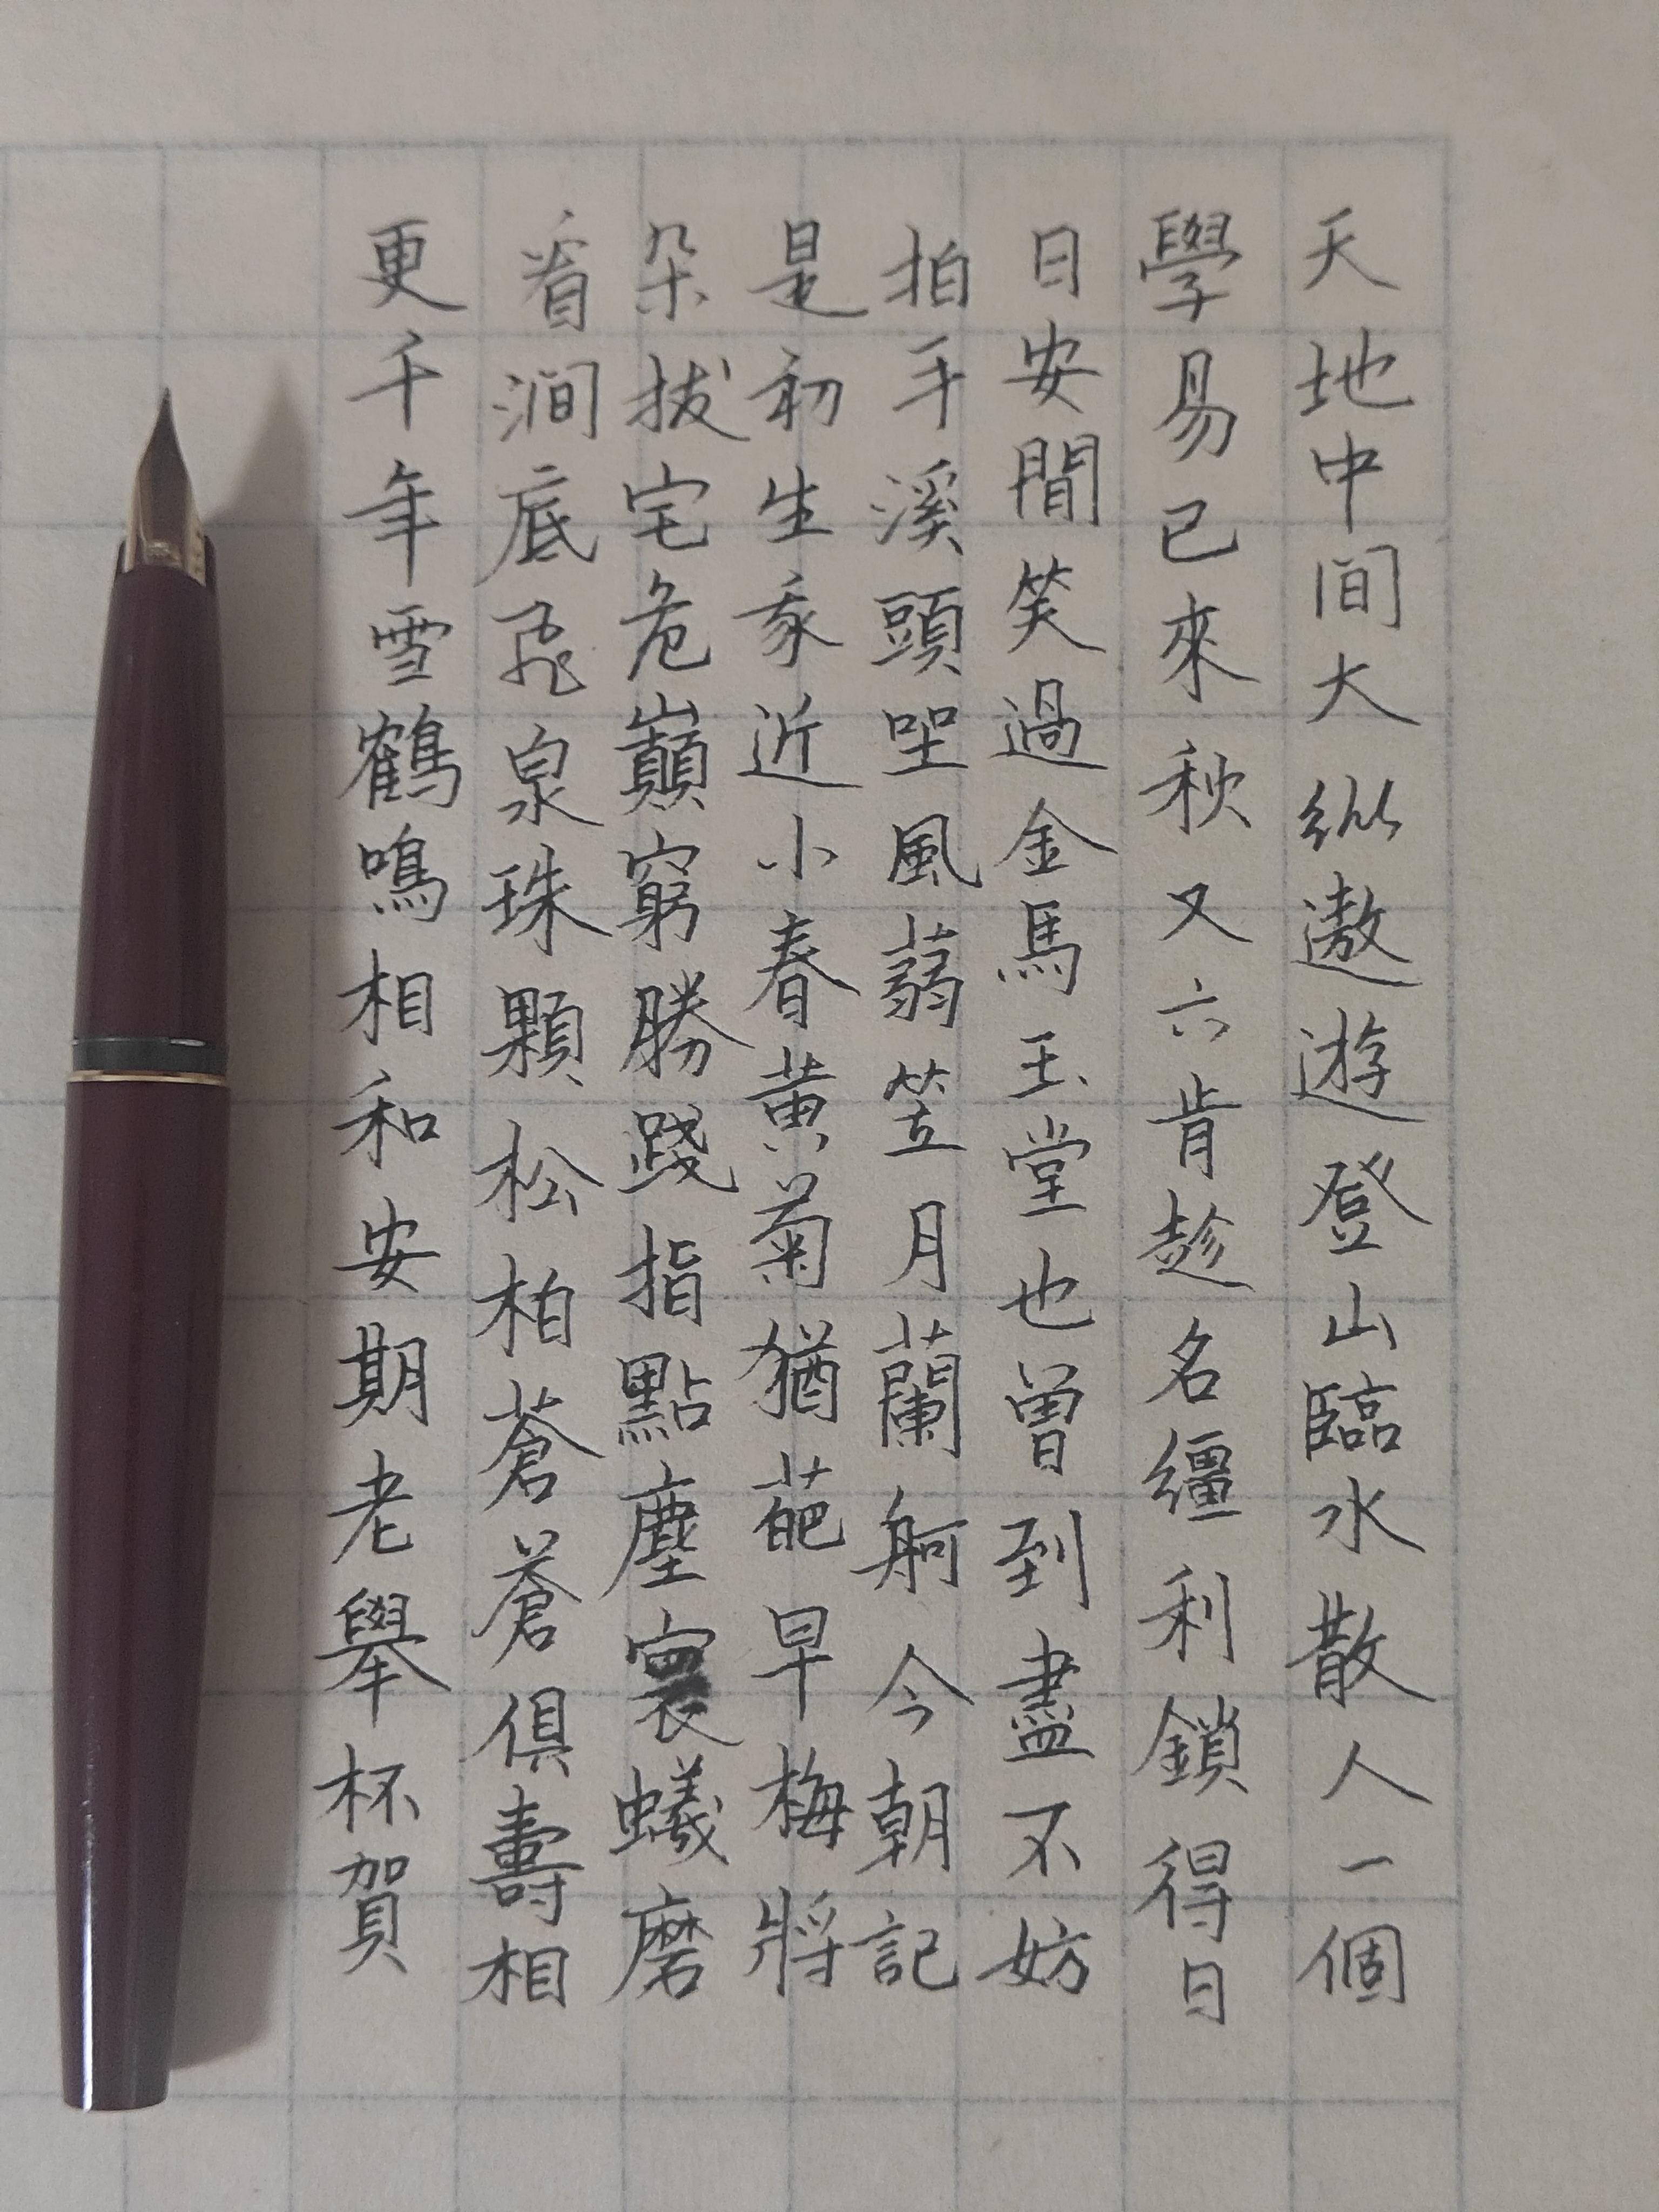 天地中间大纵遨遊登山臨水散人一個
學易已來秋又六肯趁名繮利鎖得日
日安間笑過金馬玉堂也曾到盡不妨
拍手溪頭坐風蒻笠月蘭舸今朝記
是初生我近小春黄菊猶葩早梅將
朵拔宅危巔窮勝踐指點塵寰蟻磨
看澗底飛泉珠顆松柏蒼蒼俱壽相
更千年雪鶴鳴相和安期老舉杯賀